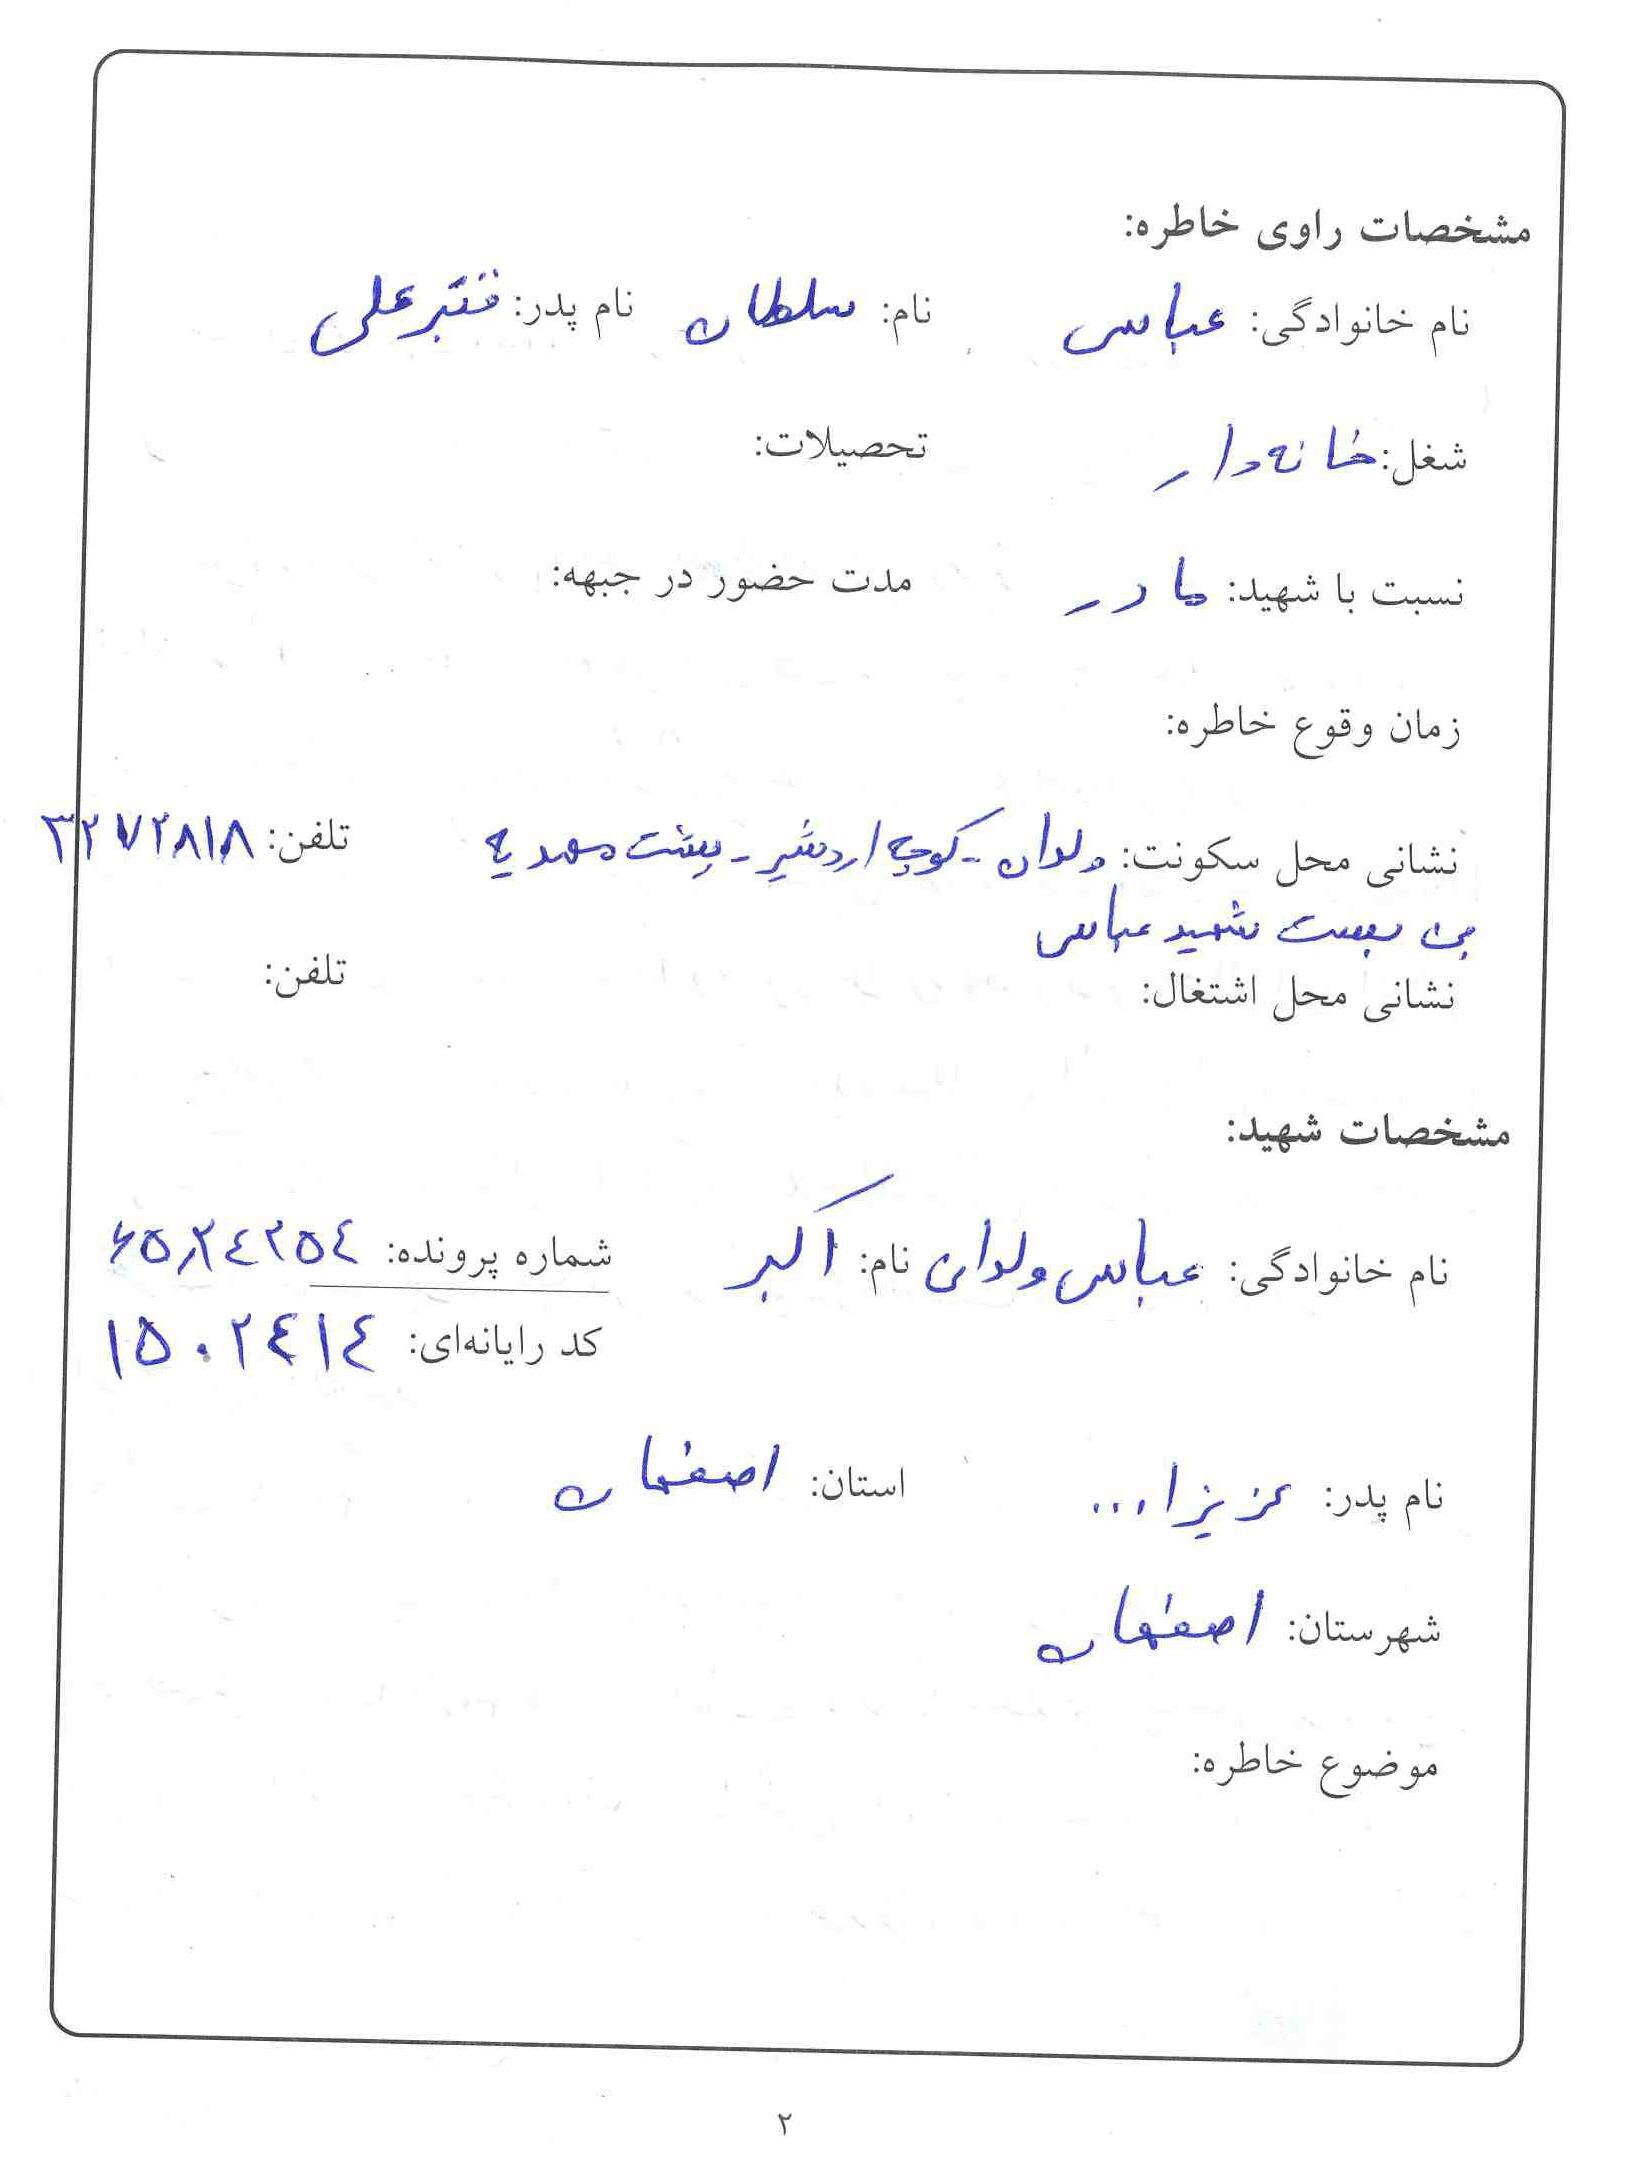 مشخصات راوی خاطره:
نام خانوادگی: عباسی نام: سلطان نام پدر: قنبرعلی
شغل: خانه‌دار تحصیلات:
نسبت با شهید: مادر مدت حضور در جبهه:
زمان وقوع خاطره:
نشانی محل سکونت: ولدان - کوچه اردشیر - پشت مهدیه تلفن: ۳۲۷۲۸۱۸
بن بست شهید عباسی
نشانی محل اشتغال: تلفن:
مشخصات شهید:
نام خانوادگی: عباسی ولدانی نام: اکبر شماره پرونده:
کد رایانه‌ای: ۱۵۰۲۴۱۴
نام پدر: عزیزا... استان: اصفهان
شهرستان: اصفهان
موضوع خاطره:
۲